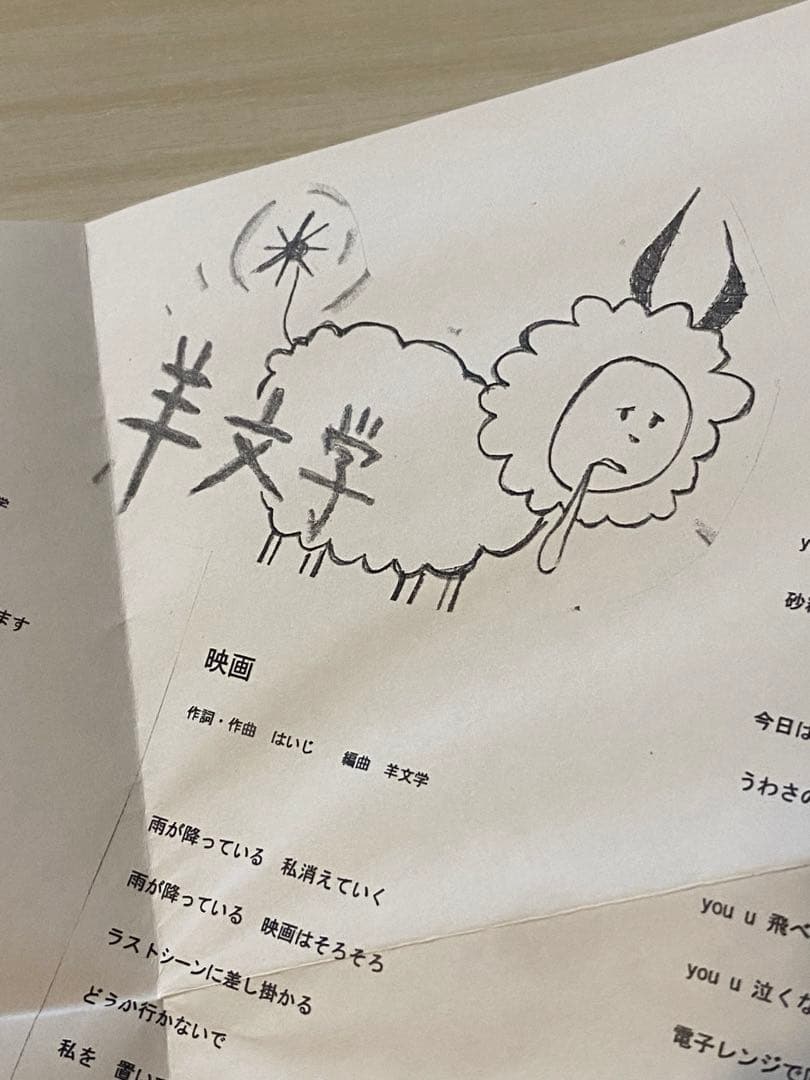 羊文学
映画
作詞・作曲 はいじ 編曲 羊文学
雨が降っている 私消えていく
雨が降っている 映画はそろそろ
ラストシーンに差し掛かる
どうか行かないで
私を 置い
ます
今日は
うわさの
you u 飛べ
you u 泣くな
電子レンジで